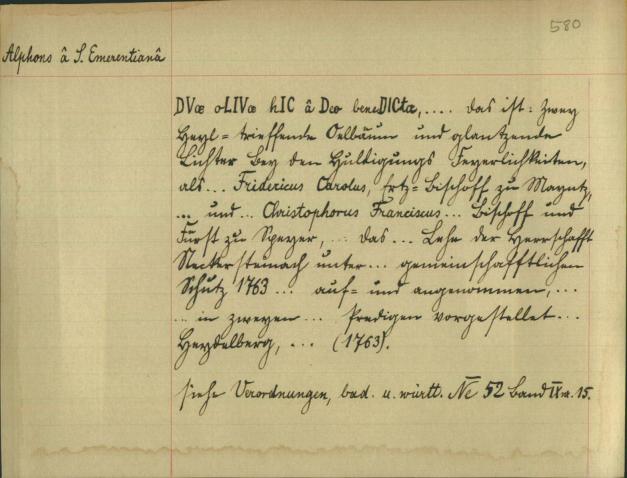 580
Alphons â S. Emerentianâ
DVæ oLIVæ hIC â Deo beneDICtæ, .... das ist: Zwey
Heyl = trieffende Oelbäum und glantzende
Lichter bey den Huldigungs Feyerlichkeiten,
als ... Fridericus Carolus, Ertz = Bischoff zu Mayntz,
... und ... Christophorus Franciscus ... Bischoff und
Fürst zu Speyer, ... das ... Lehn der Herrschafft
Neckersteinach unter ... gemeinschafftlichen
Schutz 1763 ... auf = und angenommen, ...
... in zweyen ... Predigen vorgestellet ...
Heydelberg, ... (1763).
siehe Verordnungen, bad. u. württ. No 52 Band IX nr. 15.